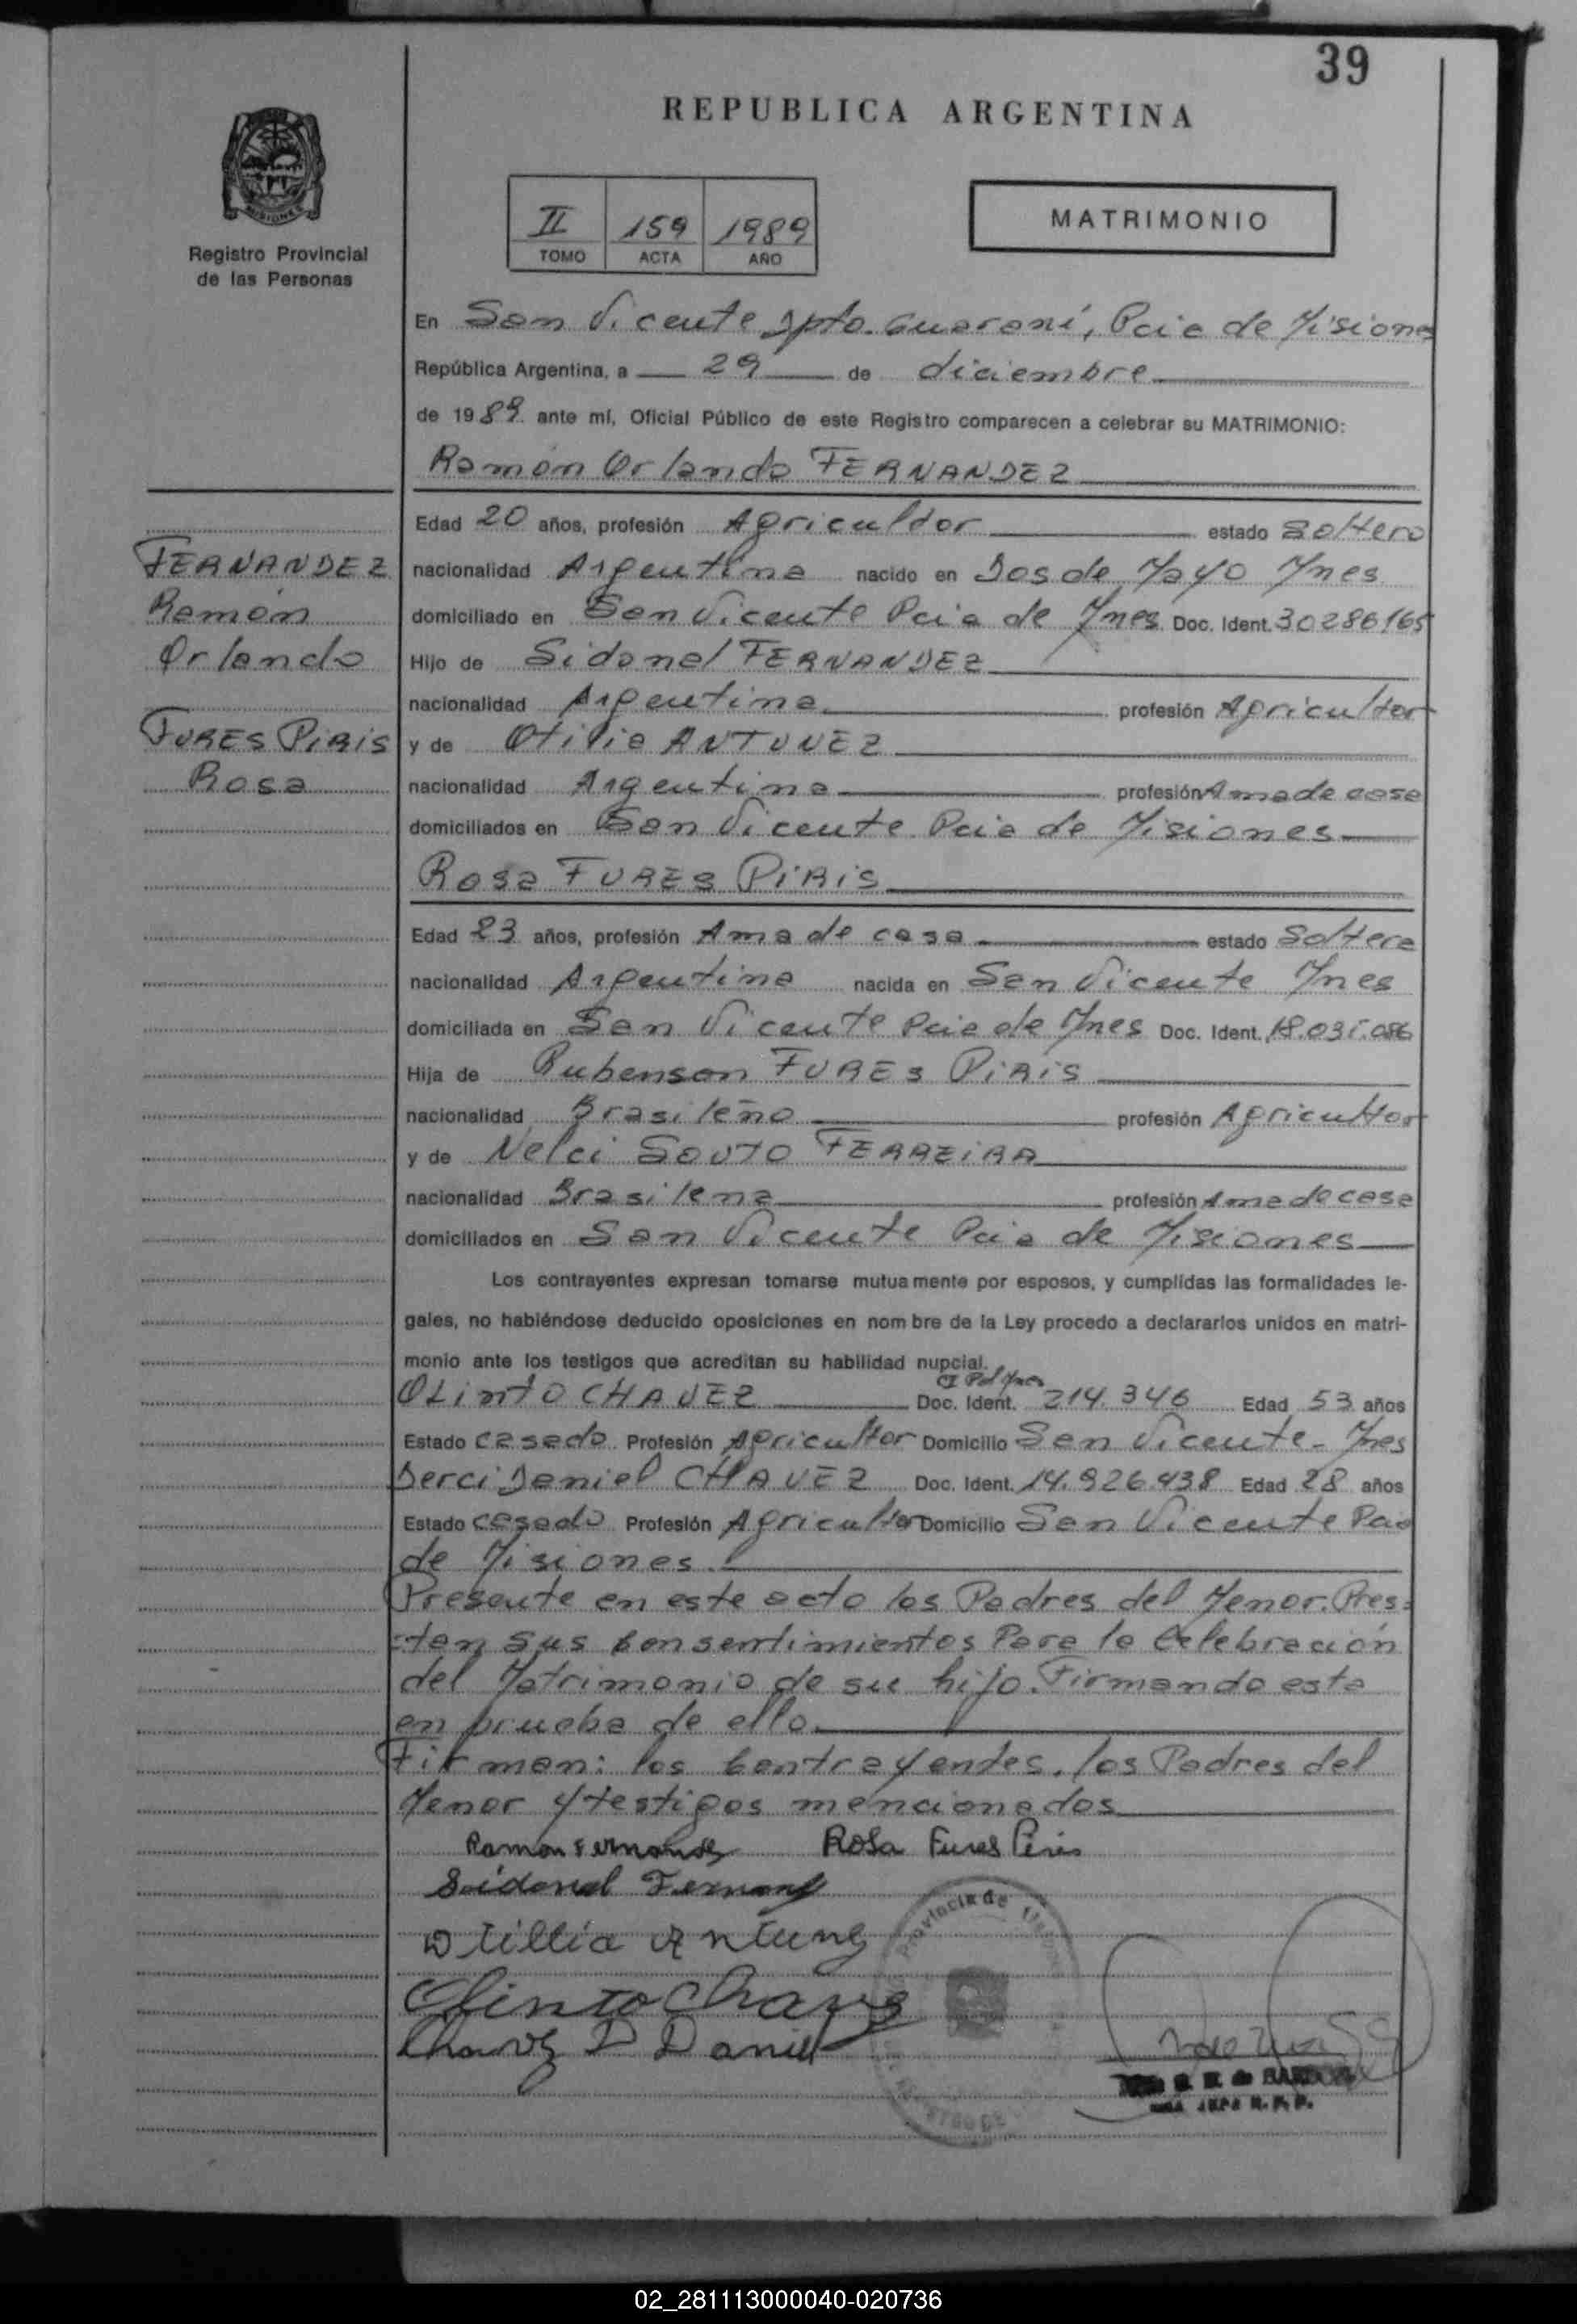 39
REPUBLICA ARGENTINA
MISIONES
Registro Provincial
de las Personas
II 159 1989
TOMO ACTA AÑO
MATRIMONIO
En San Vicente Dpto. Guaraní, Pcia de Misiones
República Argentina, a 29 de diciembre
de 1989 ante mí, Oficial Público de este Registro comparecen a celebrar su MATRIMONIO:
Ramón Orlando FERNANDEZ
Edad 20 años, profesión Agricultor estado Soltero
FERNANDEZ
Ramón
Orlando
nacionalidad Argentina nacido en Dos de Mayo Mnes
domiciliado en San Vicente Pcia de Mnes Doc. Ident. 30286165
Hijo de Sidonel FERNANDEZ
nacionalidad Argentina profesión Agricultor
FURES PIRIS
Rosa
y de Otilia ANTUNEZ
nacionalidad Argentina profesión Ama de casa
domiciliados en San Vicente Pcia de Misiones
Rosa FURES PIRIS
Edad 23 años, profesión Ama de casa estado Soltera
nacionalidad Argentina nacida en San Vicente Mnes
domiciliada en San Vicente Pcia de Mnes Doc. Ident. 18.031.086
Hija de Rubenson FURES PIRIS
nacionalidad Brasileño profesión Agricultor
y de Nelci SOUTO FERREIRA
nacionalidad Brasilena profesión Ama de casa
domiciliados en San Vicente Pcia de Misiones
Los contrayentes expresan tomarse mutuamente por esposos, y cumplidas las formalidades le-
gales, no habiéndose deducido oposiciones en nombre de la Ley procedo a declararlos unidos en matri-
monio ante los testigos que acreditan su habilidad nupcial.
CI Pol Mnes
OLinTO CHAVEZ Doc. Ident. 214.346 Edad 53 años
Estado casado Profesión Agricultor Domicilio San Vicente - Mnes
Derci Daniel CHAVEZ Doc. Ident. 14.926.438 Edad 28 años
Estado casado Profesión Agricultor Domicilio San Vicente Pcia
de Misiones.
Presente en este acto los Padres del Menor. Pres=
=tan sus consentimientos Para la Celebración
del Matrimonio de su hijo. Firmando esta
en prueba de ello.
Firman: los contrayentes, los Padres del
Menor y testigos mencionados
Ramon Fernandez Rosa Fures Piris
Seidonel Fernandez
Otillia Antunez
Olinto Chavez
Chavez D Daniel
Provincia de
R. P. P.
02_281113000040-020736